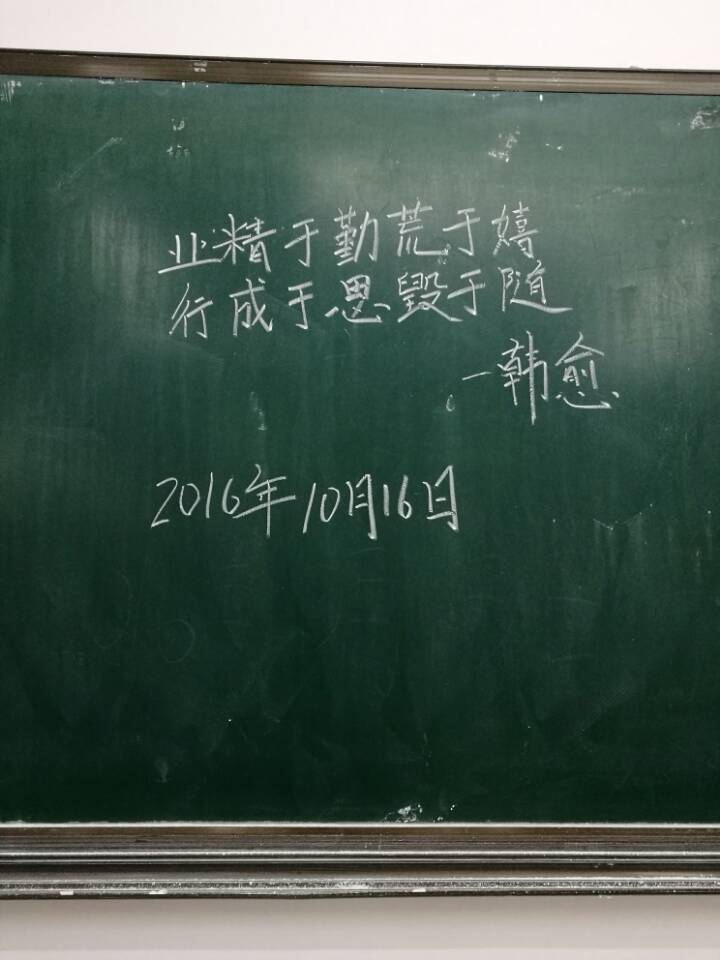 业精于勤荒于嬉
行成于思毁于随
一韩愈
2016年10月16日